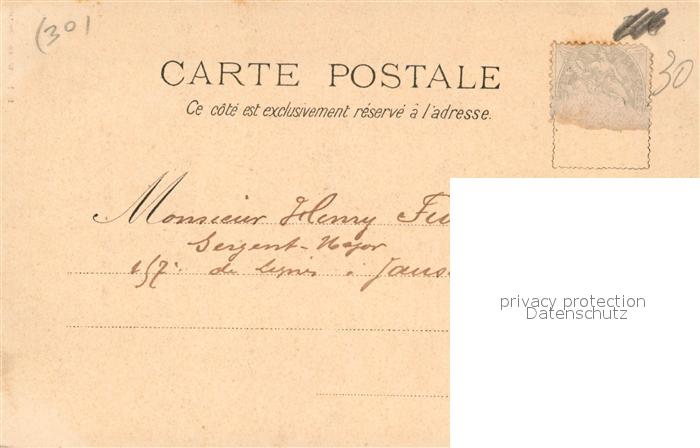 (30)
30
CARTE POSTALE
Ce côté est exclusivement réservé à l'adresse.
Monsieur Henry
Sergent-Major
157e de ligne à
privacy protection
Datenschutz